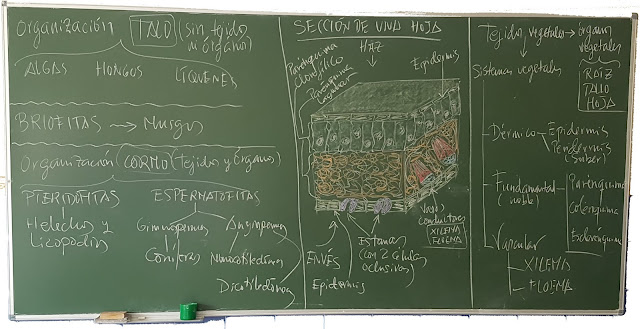 Organización TALO (sin tejidos
ni órganos)
ALGAS HONGOS LÍQUENES
BRIOFITAS → Musgos
Organización CORMO (Tejidos y órganos)
PTERIDOFITAS
Helechos y
Licopodios
ESPERMATOFITAS
Gimnospermas Angiospermas
Coníferas Monocotiledóneas
Dicotiledóneas
SECCIÓN DE UNA HOJA
HAZ
Parénquima
clorofílico
Parénquima
lagunar
Epidermis
Vasos
conductores
XILEMA
FLOEMA
ENVÉS
Epidermis
Estomas
(con 2 células
oclusivas)
Tejidos vegetales → órganos
vegetales
RAÍZ
TALLO
HOJA
Sistemas vegetales
Dérmico
Epidermis
Peridermis
(Súber)
Fundamental
Parénquima
Colénquima
Esclerénquima
Vascular
XILEMA
FLOEMA